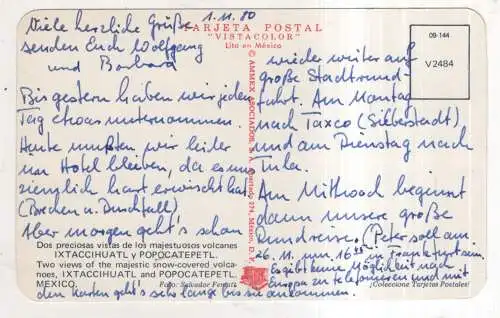 Viele herzliche Grüße 1.11.80
senden Euch Wolfgang
und Barbara
Bis gestern haben wir jeden
Tag etwas unternommen.
Heute mußten wir leider
im Hotel bleiben, da es uns
ziemlich hart erwischt hat
(Brechen u. Durchfall)
Aber morgen geht's schon
wieder weiter auf
große Stadtrund-
fahrt. Am Montag
nach Taxco (Silberstadt)
und am Dienstag nach
Tula.
Am Mittwoch beginnt
dann unsere große
Rundreise. (Peter soll am
26.11. um 16 in Frankfurt sein.
Es gibt keine Möglichkeit nach
Europa zu telefonieren und mit
den Karten geht's sehr lange bis sie ankommen.
TARJETA POSTAL
"VISTACOLOR"
Lito en México
09-144
V2484
© AMMEX ASOCIADOS, S. A. 
Dos preciosas vistas de los majestuosos volcanes
IXTACCIHUATL y POPOCATEPETL.
Two views of the majestic snow-covered volca-
noes, IXTACCIHUATL and POPOCATEPETL.
MEXICO.
Foto: Salvador
¡Coleccione Tarjetas Postales!